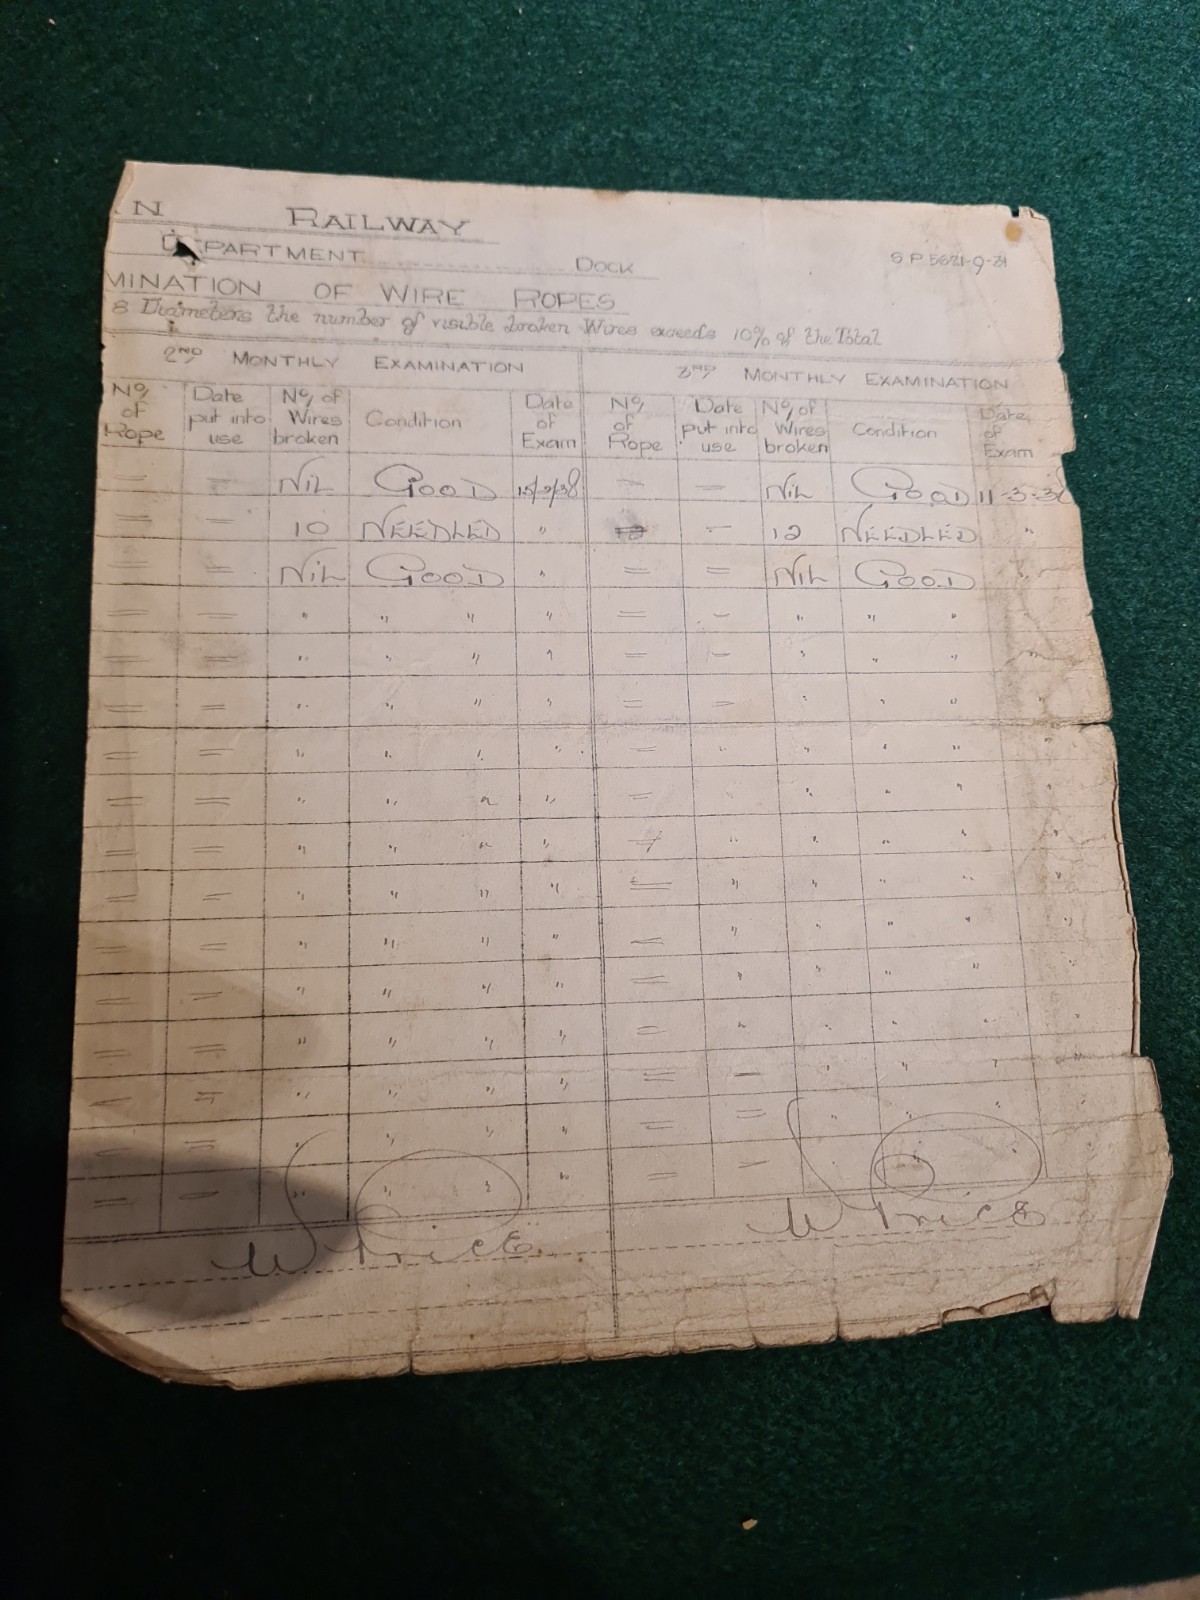 N RAILWAY
DEPARTMENT DOCK
MINATION OF WIRE ROPES
8 Diameters the number of visible broken Wires exceeds 10% of the Total
2ND MONTHLY EXAMINATION 3RD MONTHLY EXAMINATION
No/ of Rope Date put into use No/ of Wires broken Condition Date of Exam No/ of Rope Date put into use No/ of Wires broken Condition Date of Exam
= = NIL GOOD = — NIL GOOD 11-3-38
= = 10 NEEDLED " — 12 NEEDLED "
= = NIL GOOD " = = NIL GOOD "
= = " " " " = — " " " "
= = " " " " = — " " " "
= = " " " " = — " " " "
= = " " " " = " " " " "
= = " " " " = " " " " "
= = " " " " = " " " " "
= = " " " " = " " " " "
= = " " " " = " " " " "
= = " " " " = " " " " "
= = " " " " = " " " " "
= = " " " " = — " " " "
= = " " " " = = " " "
= — " " " " = — " "
W Price W Price